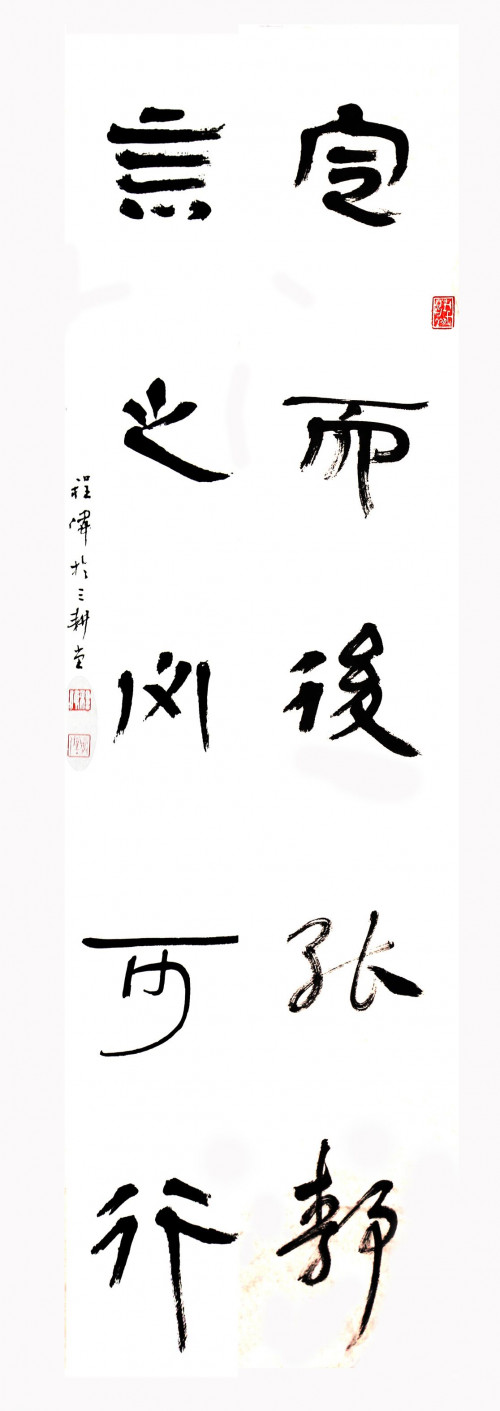 定而後能靜
言之必可行
程偉於三耕堂